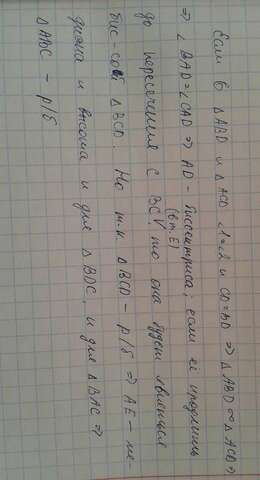 Если в △ABD и △ACD ∠1=∠2 и CD=BD ⇒ △ABD ∞ △ACD ⇒
⇒ ∠BAD=∠CAD ⇒ AD - биссектриса; если её продлить
до пересечения с BC (в т. E), то она будет являться
бис-сой △BCD. Но т.к. △BCD - р/б ⇒ AE - ме-
диана и высота и для △BDC, и для △BAC ⇒
△ABC - р/б